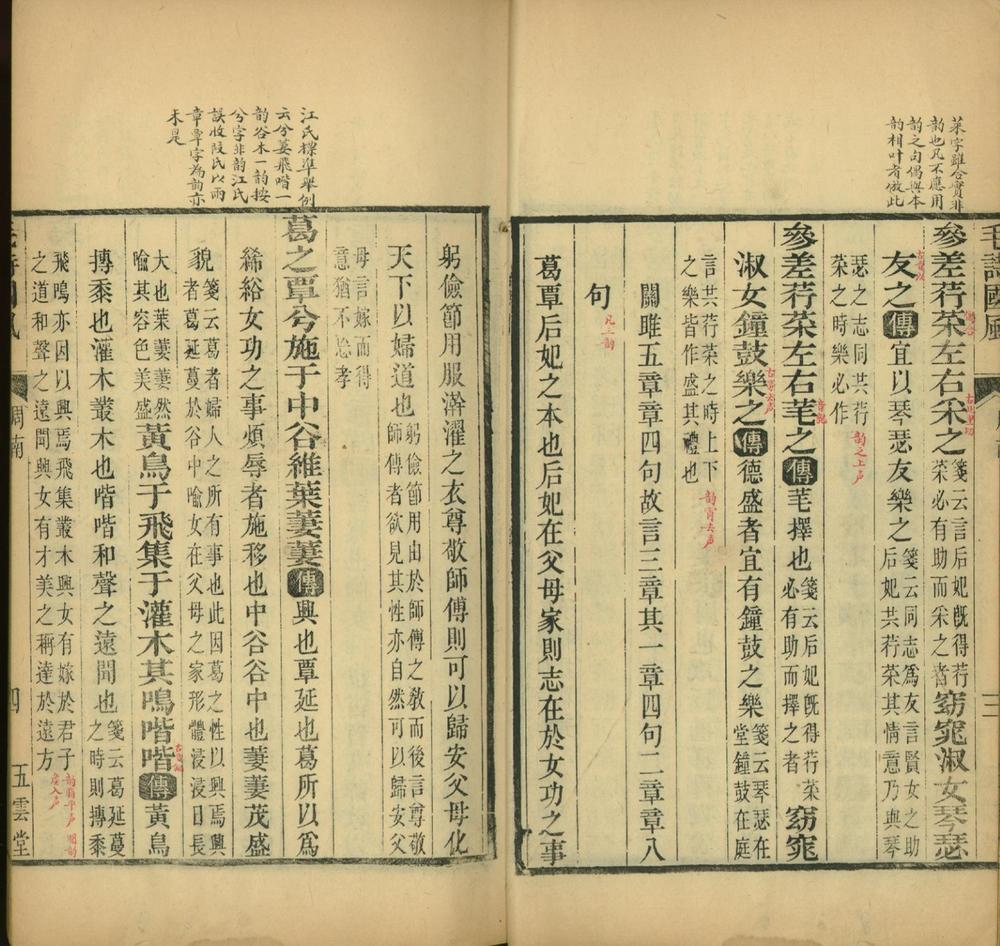 菜字雖合實非
韵也凡不應用
韵之句偶與本
韵相叶者倣此
毛詩國風
三
參差荇菜左右采之箋云言后妃既得荇
菜必有助而采之者窈窕淑女琴瑟
友之傳宜以琴瑟友樂之箋云同志爲友言賢女之助
后妃共荇菜其情意乃與琴
瑟之志同共荇
菜之時樂必作
韵之上声
參差荇菜左右芼之傳芼擇也箋云后妃既得荇菜
必有助而擇之者窈窕
淑女鐘鼓樂之傳德盛者宜有鐘鼓之樂箋云琴瑟在
堂鐘鼓在庭
言共荇菜之時上下
之樂皆作盛其禮也
韵宵去声
關雎五章章四句故言三章其一章四句二章章八
句
凡三韵
葛覃后妃之本也后妃在父母家則志在於女功之事
江氏標準舉例
云兮萋飛喈一
韵谷木一韵按
兮字非韵江氏
誤收段氏以兩
章覃字為韵亦
未是
躬儉節用服澣濯之衣尊敬師傅則可以歸安父母化
天下以婦道也躬儉節用由於師傅之敎而後言尊敬
師傅者欲見其性亦自然可以歸安父
母言嫁而得
意猶不忘孝
葛之覃兮施于中谷維葉萋萋傳興也覃延也葛所以爲
絺綌女功之事煩辱者施移也中谷谷中也萋萋茂盛
貌箋云葛者婦人之所有事也此因葛之性以興焉興
者葛延蔓於谷中喻女在父母之家形體浸浸日長
大也葉萋萋然
喻其容色美盛黃鳥于飛集于灌木其鳴喈喈傳黃鳥
摶黍也灌木叢木也喈喈和聲之遠聞也箋云葛延蔓
之時則摶黍
飛鳴亦因以興焉飛集叢木興女有嫁於君子
之道和聲之遠聞興女有才美之稱達於遠方
周南
四
五雲堂